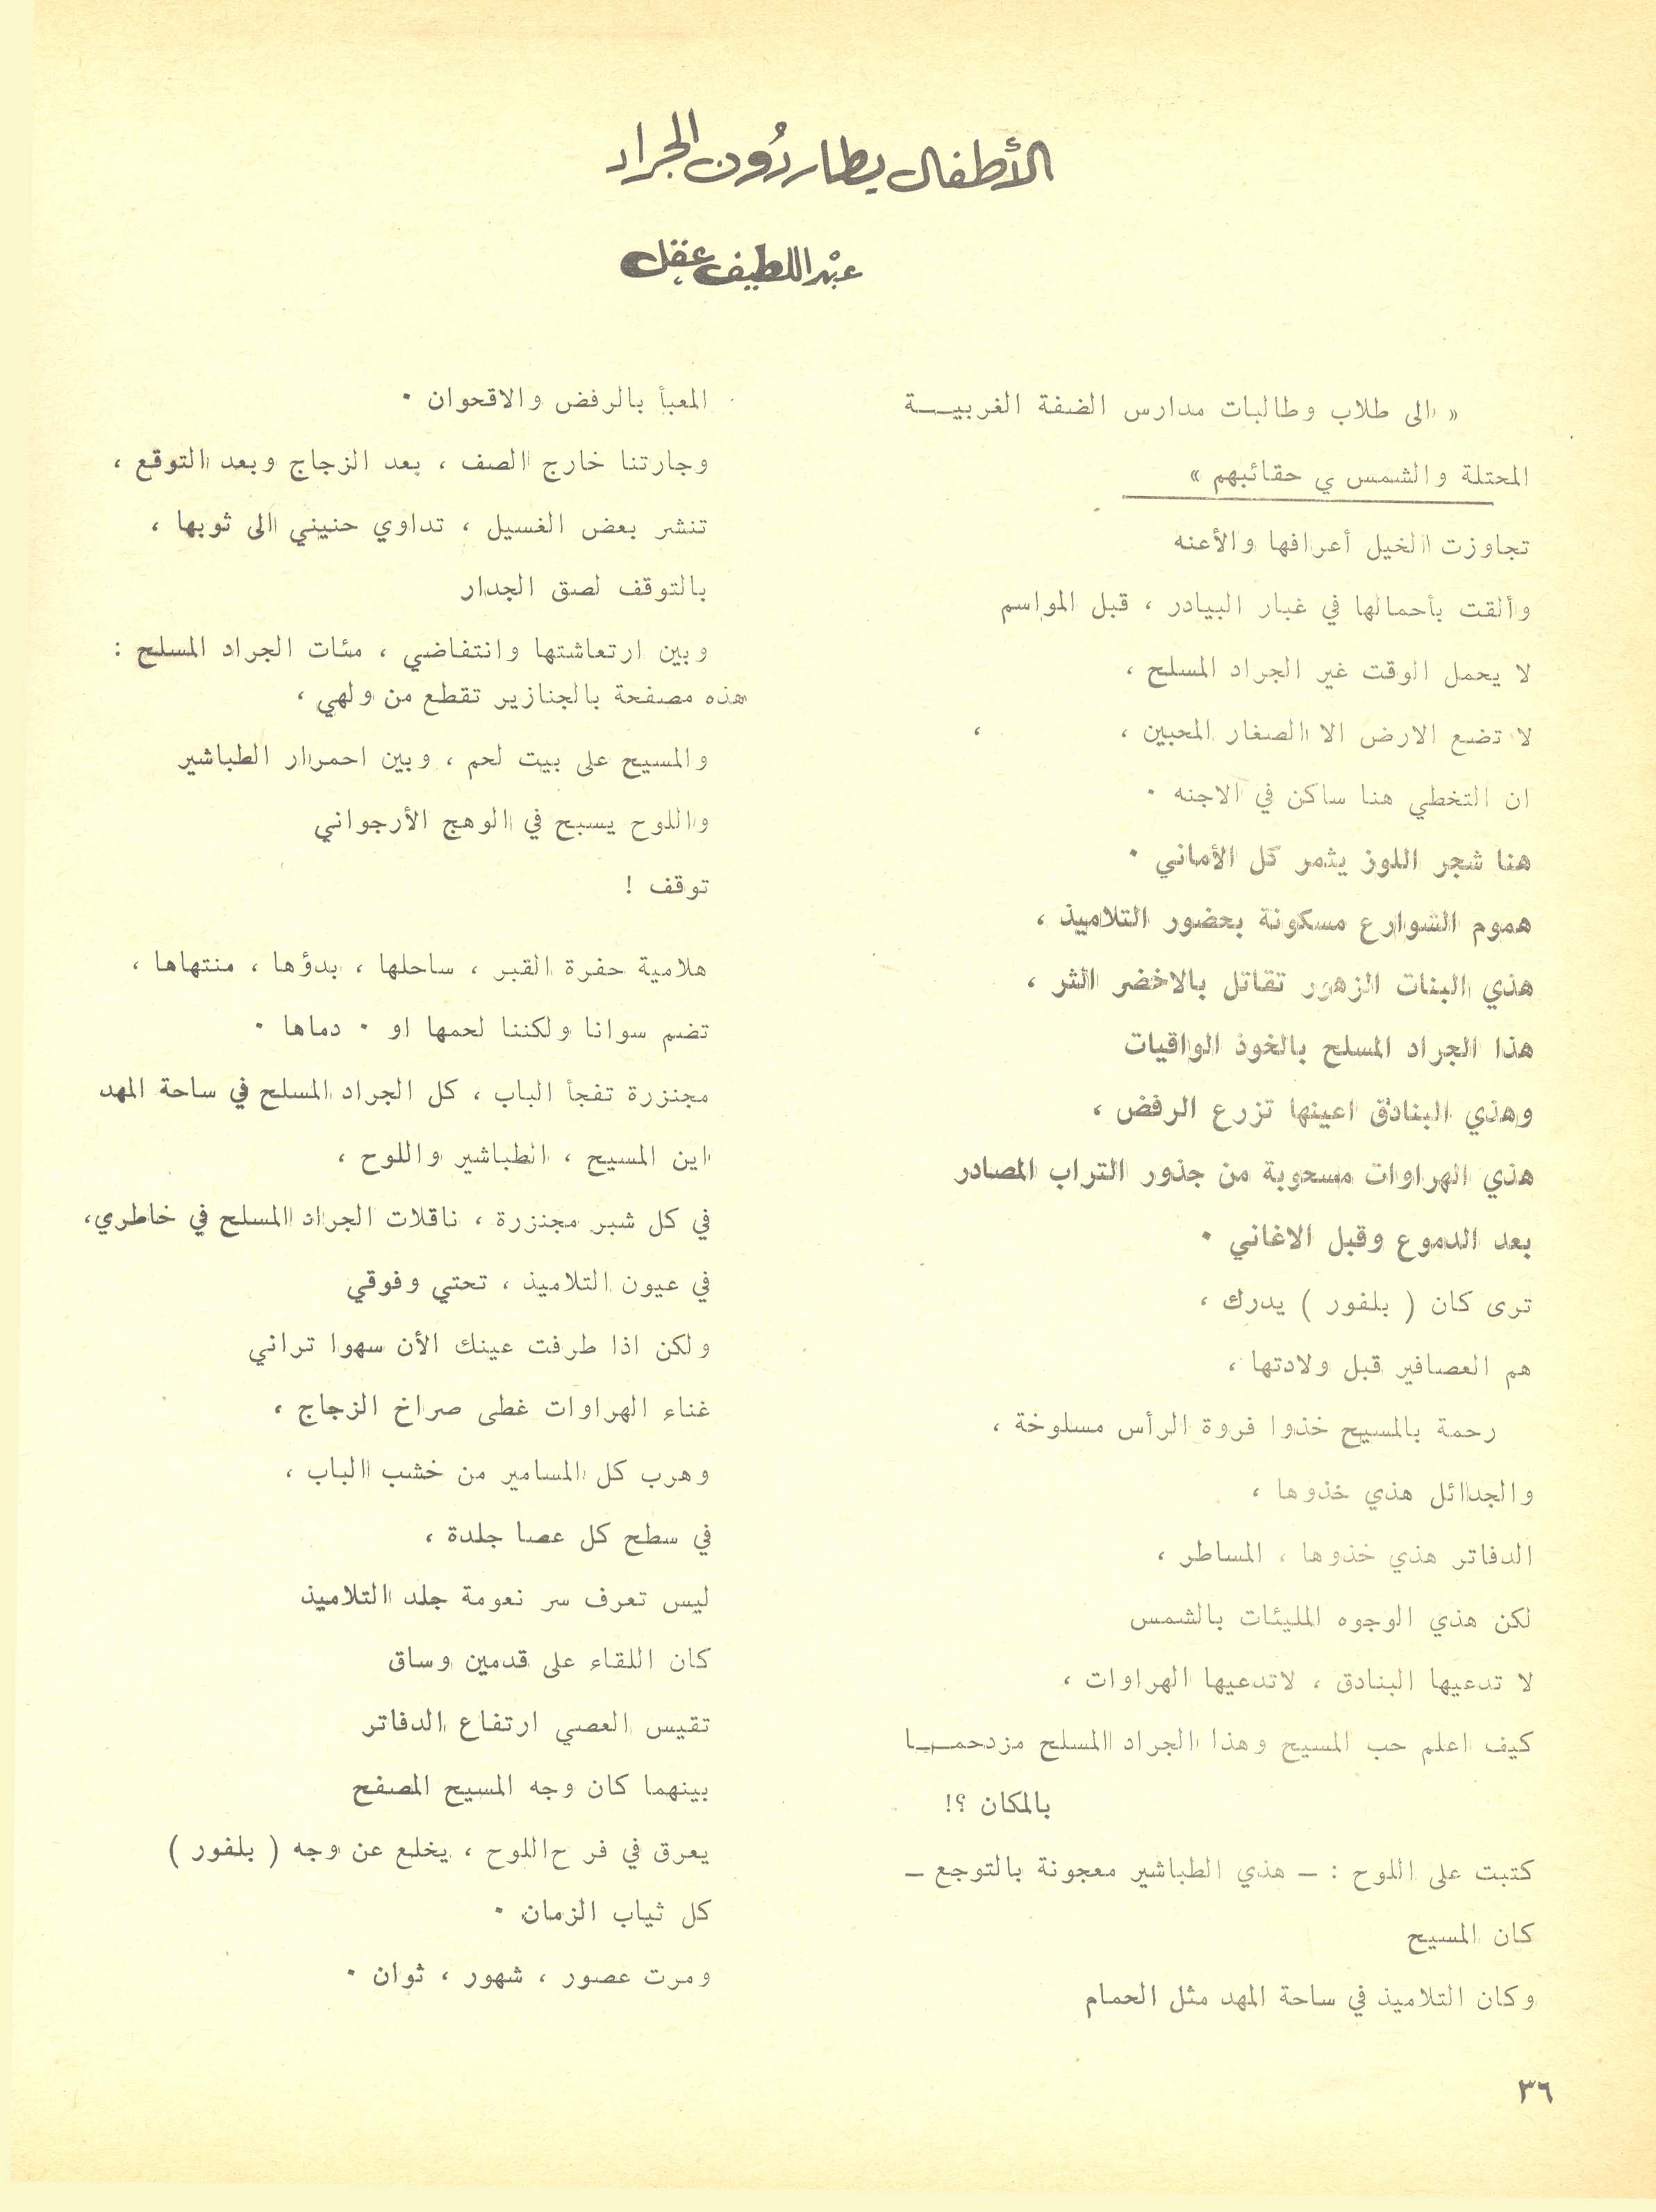 الأطفال يطاردُون الجراد
عبْد اللطيف عقل
« الى طلاب وطالبات مدارس الضفة الغربيـــة
المحتلة والشمس ي حقائبهم »
تجاوزت الخيل أعرافها والأعنه
وألقت بأحمالها في غبار البيادر ، قبل المواسم
لا يحمل الوقت غير الجراد المسلح ،
لا تضع الارض الا الصغار المحبين ، ،
ان التخطي هنا ساكن في الاجنه ٠
هنا شجر اللوز يثمر كل الأماني ٠
هموم الشوارع مسكونة بحضور التلاميذ ،
هذي البنات الزهور تقاتل بالاخضر الثر ،
هذا الجراد المسلح بالخوذ الواقيات
وهذي البنادق اعينها تزرع الرفض ،
هذي الهراوات مسحوبة من جذور التراب المصادر
بعد الدموع وقبل الاغاني ٠
ترى كان ( بلفور ) يدرك ،
هم العصافير قبل ولادتها ،
رحمة بالمسيح خذوا فروة الرأس مسلوخة ،
والجدائل هذي خذوها ،
الدفاتر هذي خذوها ، المساطر ،
لكن هذي الوجوه المليئات بالشمس
لا تدعيها البنادق ، لاتدعيها الهراوات ،
كيف اعلم حب المسيح وهذا الجراد المسلح مزدحمـــا
بالمكان ؟!
كتبت على اللوح : ـ هذي الطباشير معجونة بالتوجع ـ
كان المسيح
وكان التلاميذ في ساحة المهد مثل الحمام
المعبأ بالرفض والاقحوان ٠
وجارتنا خارج الصف ، بعد الزجاج وبعد التوقع ،
تنشر بعض الغسيل ، تداوي حنيني الى ثوبها ،
بالتوقف لصق الجدار
وبين ارتعاشتها وانتفاضي ، مئات الجراد المسلح :
هذه مصفحة بالجنازير تقطع من ولهي ،
والمسيح على بيت لحم ، وبين احمرار الطباشير
واللوح يسبح في الوهج الأرجواني
توقف !
هلامية حفرة القبر ، ساحلها ، بدؤها ، منتهاها ،
تضم سوانا ولكننا لحمها او ٠ دماها ٠
مجنزرة تفجأ الباب ، كل الجراد المسلح في ساحة المهد
اين المسيح ، الطباشير واللوح ،
في كل شبر مجنزرة ، ناقلات الجراد المسلح في خاطري،
في عيون التلاميذ ، تحتي وفوقي
ولكن اذا طرفت عينك الأن سهوا تراني
غناء الهراوات غطى صراخ الزجاج ،
وهرب كل المسامير من خشب الباب ،
في سطح كل عصا جلدة ،
ليس تعرف سر نعومة جلد التلاميذ
كان اللقاء على قدمين وساق
تقيس العصي ارتفاع الدفاتر
بينهما كان وجه المسيح المصفح
يعرق في فر ح اللوح ، يخلع عن وجه ( بلفور )
كل ثياب الزمان ٠
ومرت عصور ، شهور ، ثوان ٠
٣٦